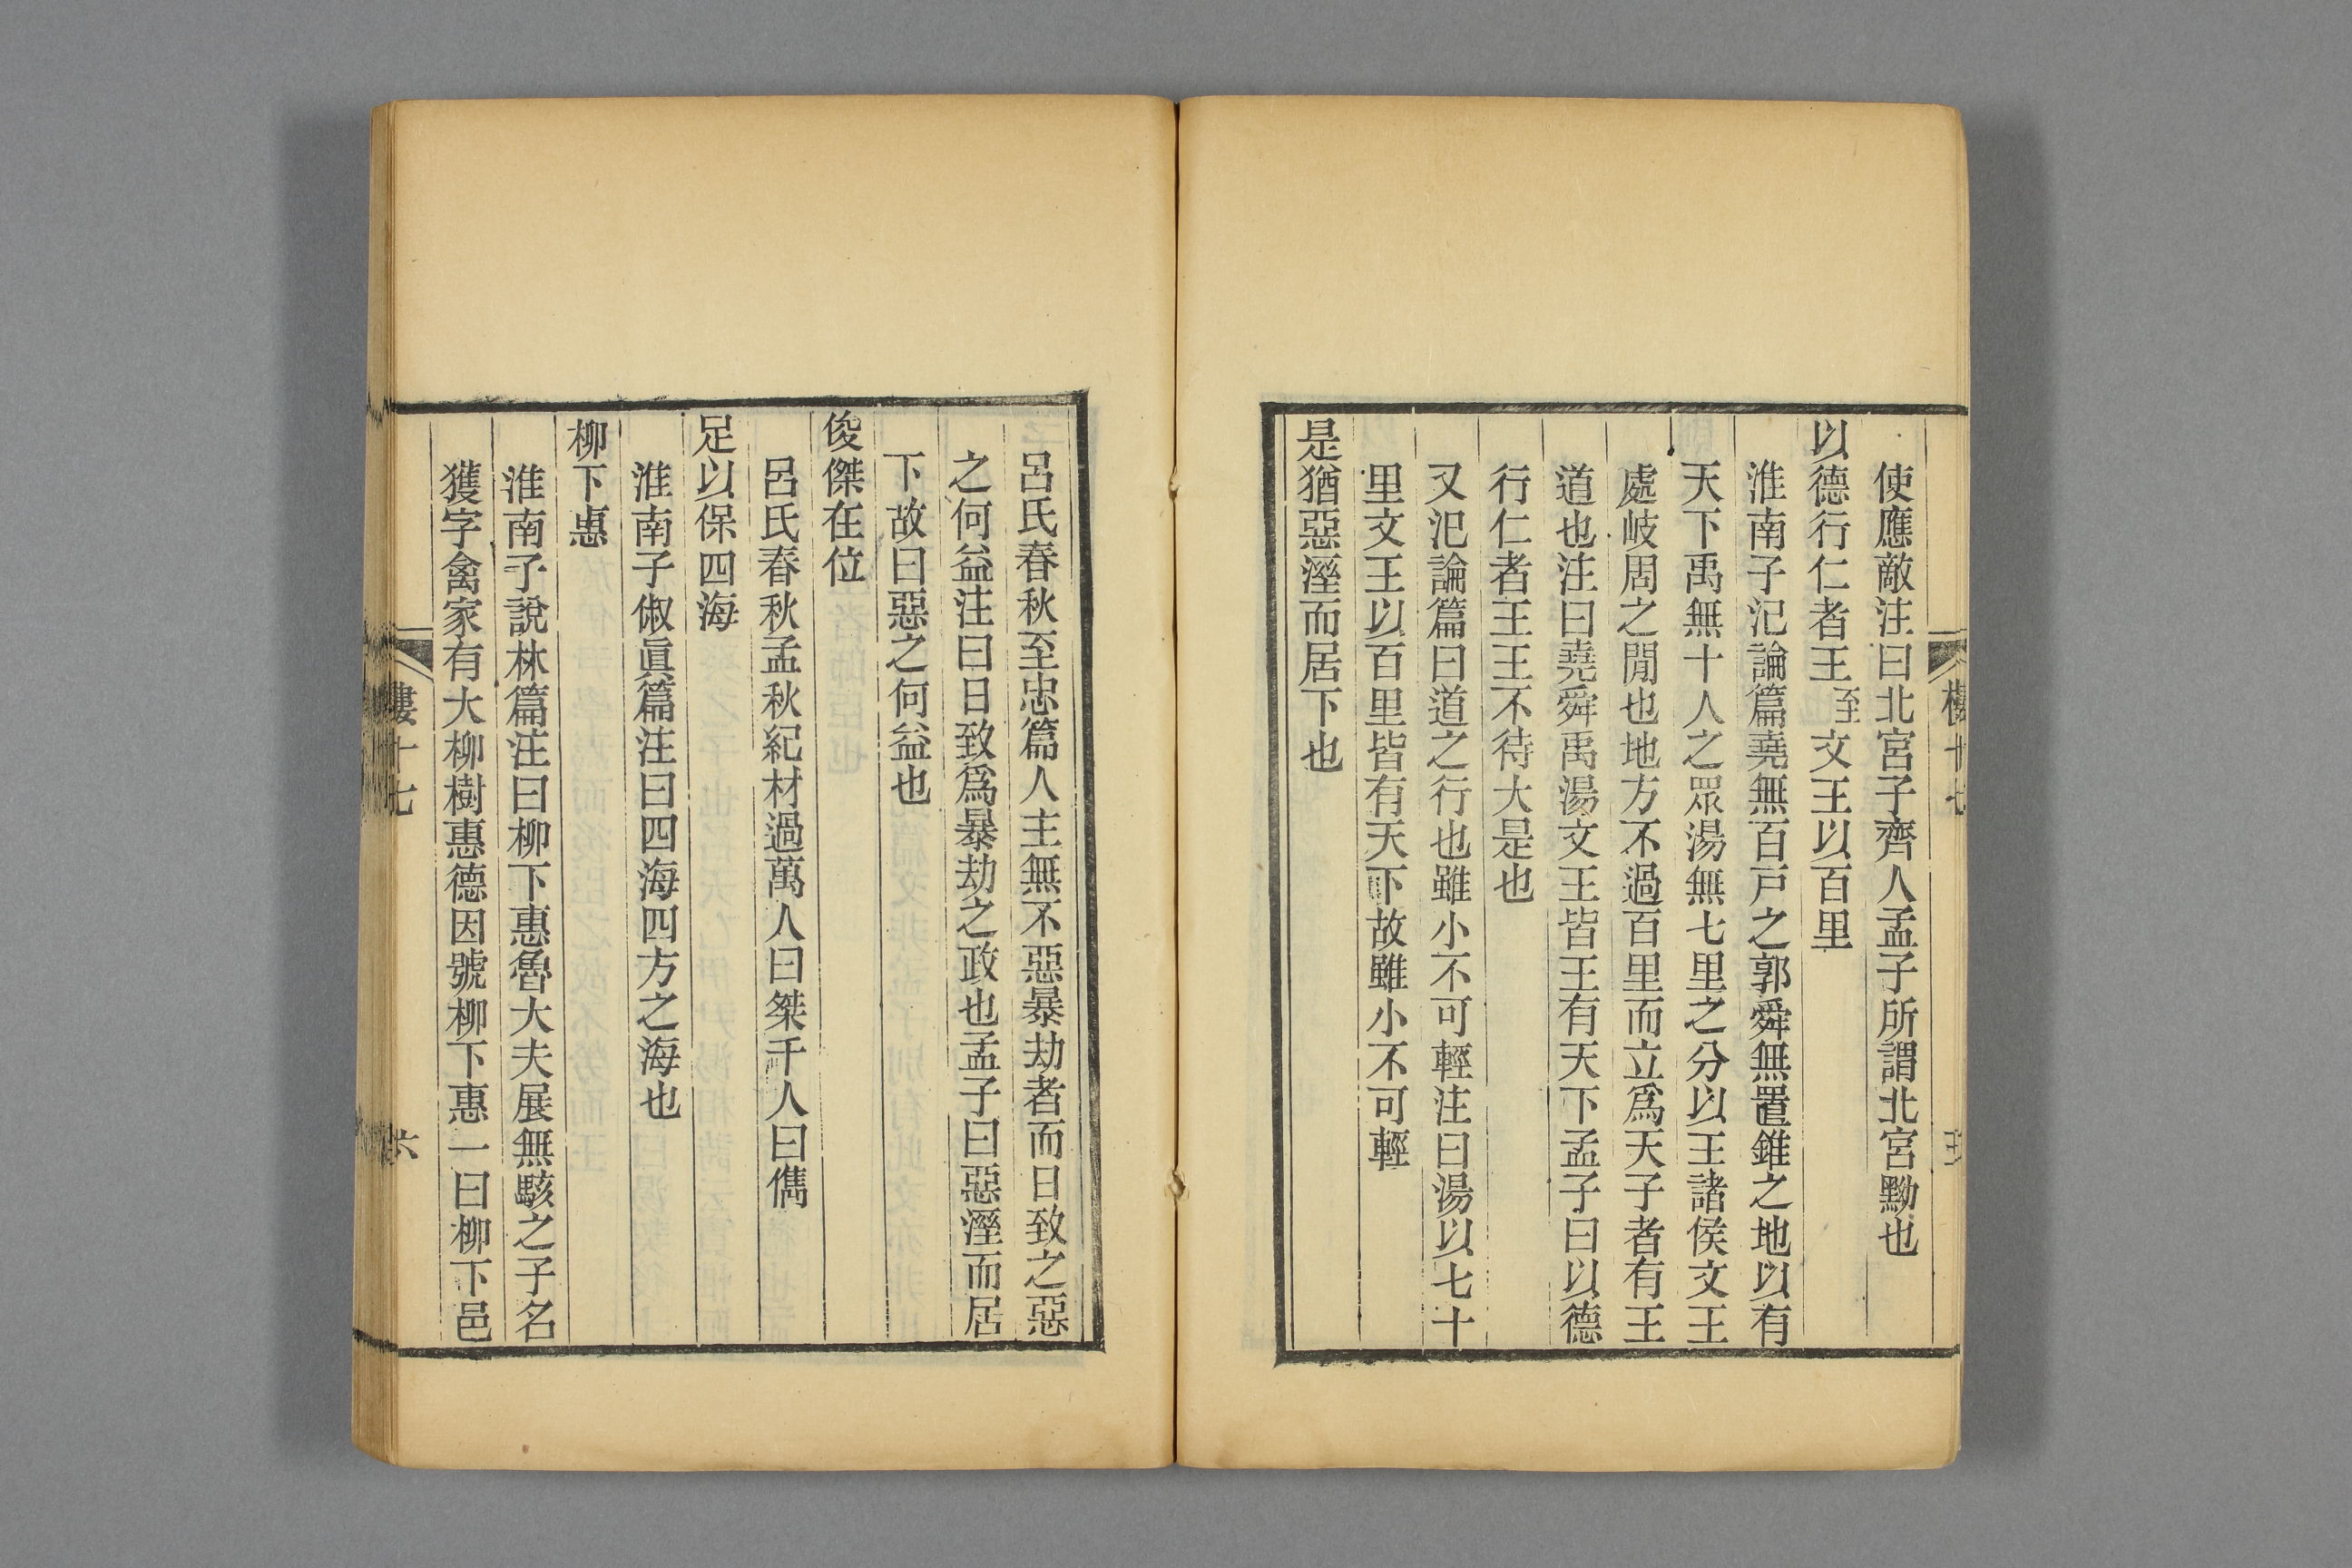 使應敵注曰北宮子齊人孟子所謂北宮黝也
以德行仁者王至文王以百里
淮南子氾論篇堯無百戸之郭舜無置錐之地以有
天下禹無十人之眾湯無七里之分以王諸侯文王
處岐周之閒也地方不過百里而立爲天子者有王
道也注曰堯舜禹湯文王皆王有天下孟子曰以德
行仁者王王不待大是也
又氾論篇曰道之行也雖小不可輕注曰湯以七十
里文王以百里皆有天下故雖小不可輕
是猶惡溼而居下也
呂氏春秋至忠篇人主無不惡暴劫者而日致之惡
之何益注曰日致爲暴劫之政也孟子曰惡溼而居
下故曰惡之何益也
俊傑在位
呂氏春秋孟秋紀材過萬人曰桀千人曰儁
足以保四海
淮南子俶眞篇注曰四海四方之海也
柳下惠
淮南子說林篇注曰柳下惠魯大夫展無駭之子名
獲字禽家有大柳樹惠德因號柳下惠一曰柳下邑
樓十七
六